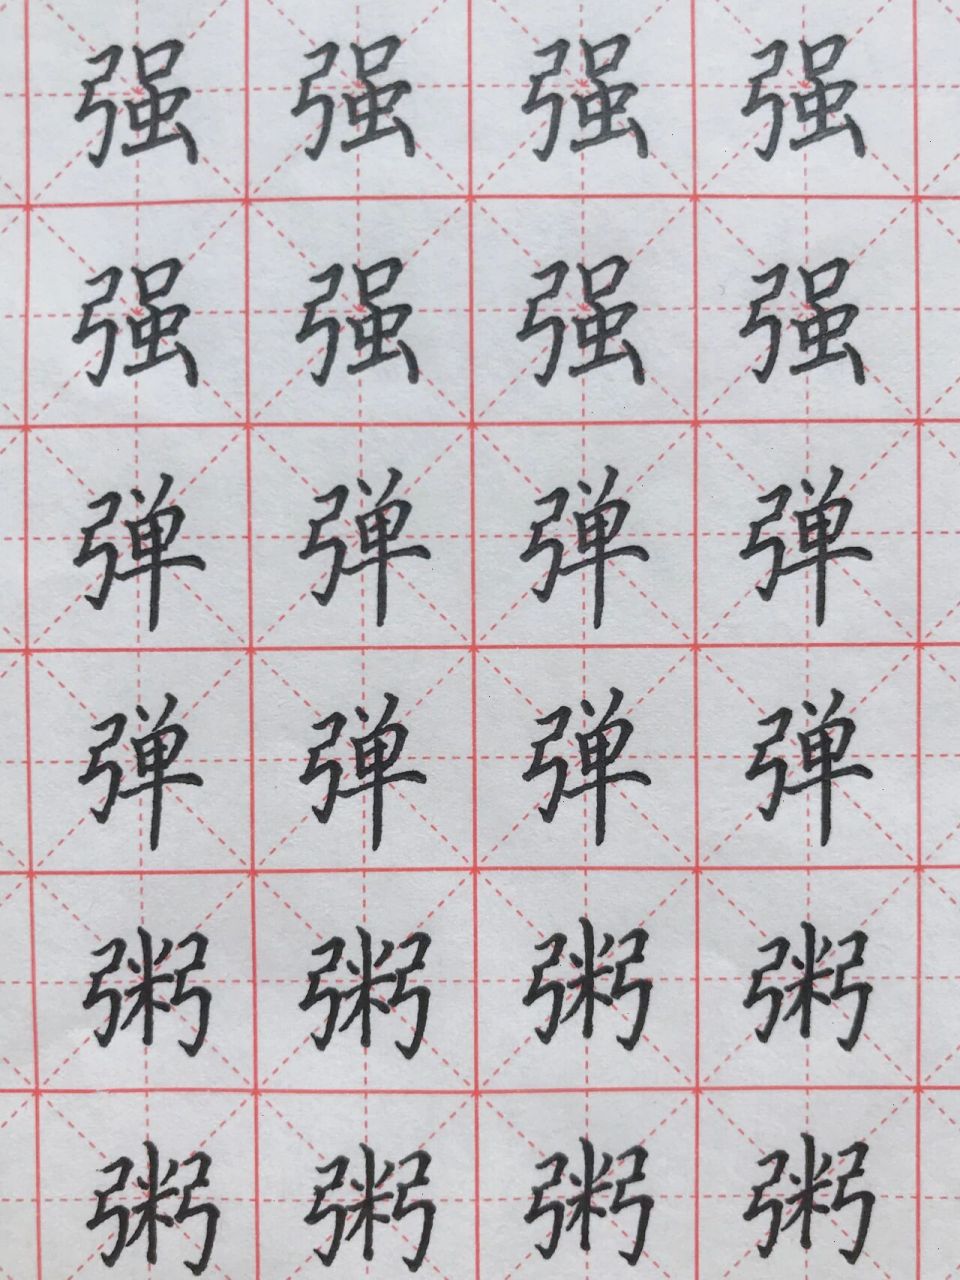 强强强强
强强强强
弹弹弹弹
弹弹弹弹
粥粥粥粥
粥粥粥粥